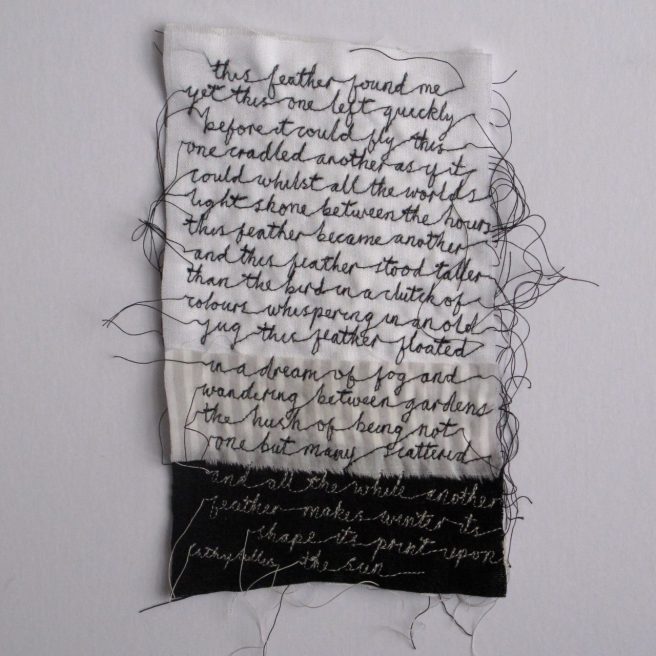 this feather found me
yet this one left quickly
before it could fly this
one cradled another as if it
could whilst all the worlds
light shone between the hours
this feather became another
and this feather stood taller
than the bird in a clutch of
colours whispering in an old
jug this feather floated
in a dream of fog and
wandering between gardens
the hush of being not
one but many scattered
and all the while another
feather makes winter its
shape its print upon
the sun